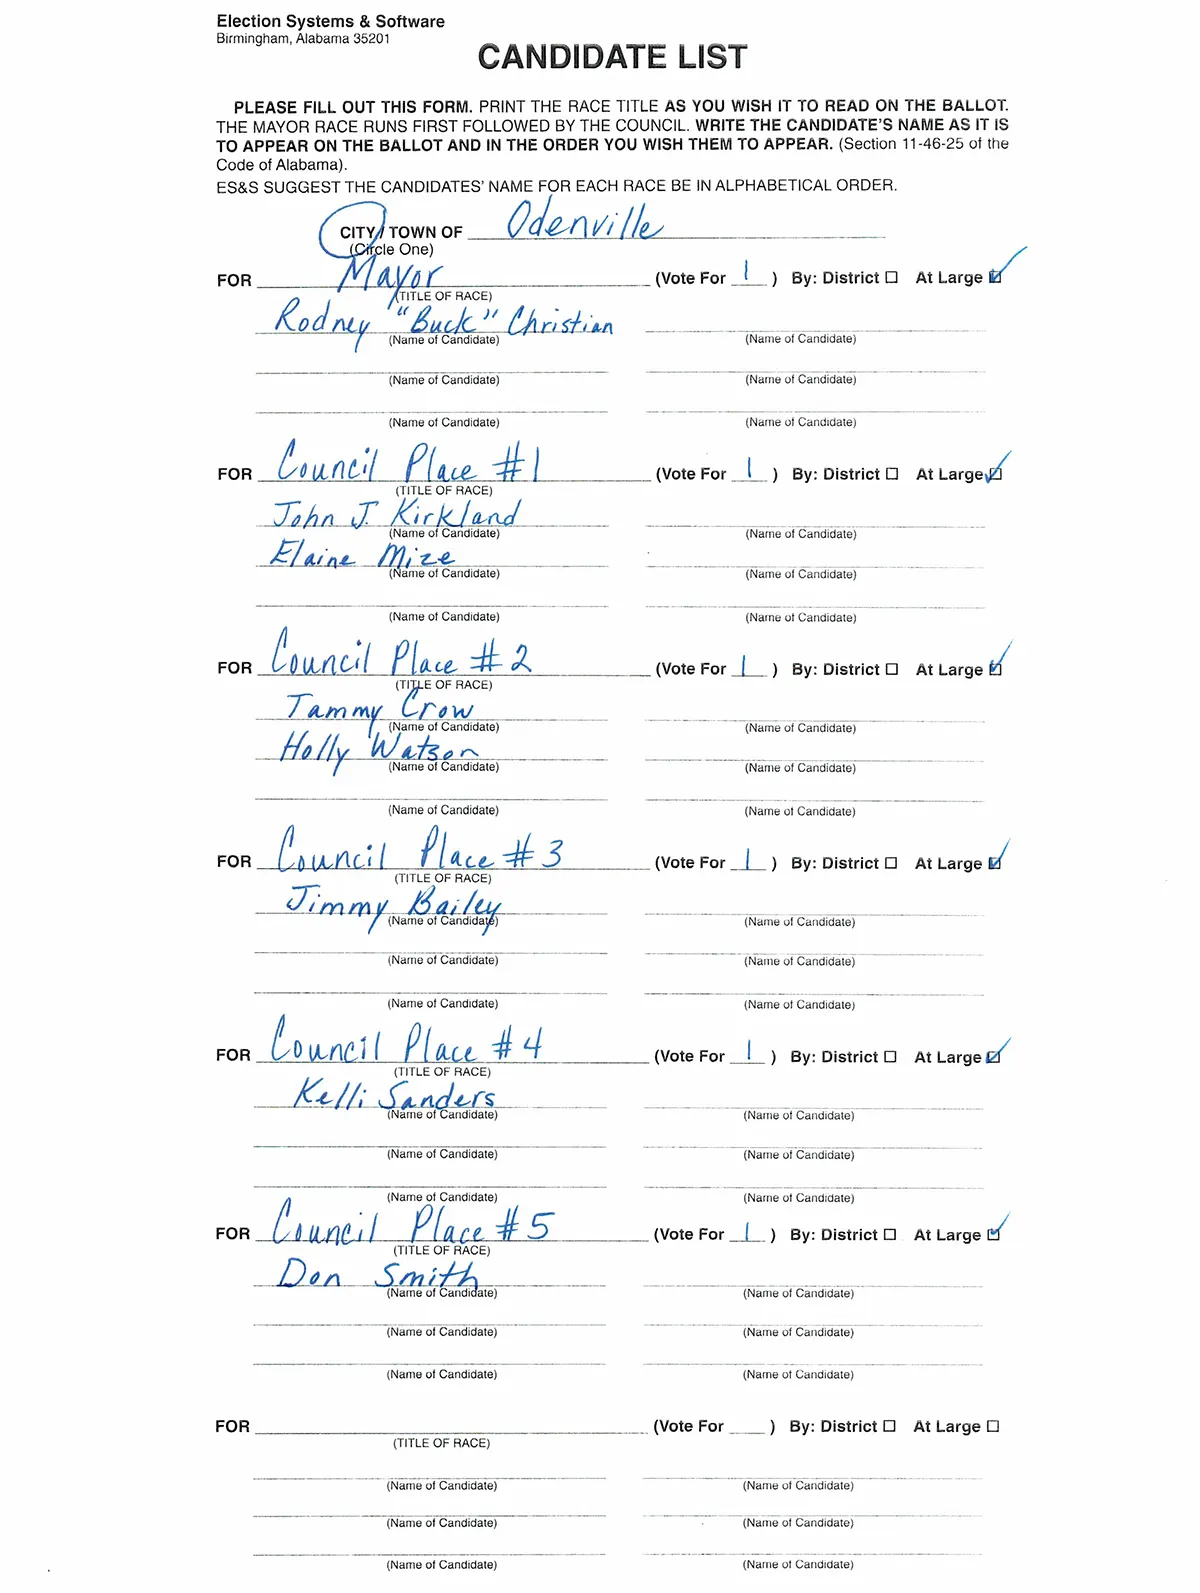 Election Systems & Software
Birmingham, Alabama 35201
CANDIDATE LIST
PLEASE FILL OUT THIS FORM. PRINT THE RACE TITLE AS YOU WISH IT TO READ ON THE BALLOT.
THE MAYOR RACE RUNS FIRST FOLLOWED BY THE COUNCIL. WRITE THE CANDIDATE'S NAME AS IT IS
TO APPEAR ON THE BALLOT AND IN THE ORDER YOU WISH THEM TO APPEAR. (Section 11-46-25 of the
Code of Alabama).
ES&S SUGGEST THE CANDIDATES' NAME FOR EACH RACE BE IN ALPHABETICAL ORDER.
CITY / TOWN OF Odenville
(Circle One)
FOR Mayor (Vote For 1 ) By: District ☐ At Large ☑
(TITLE OF RACE)
Rodney "Buck" Christian
(Name of Candidate) (Name of Candidate)
(Name of Candidate) (Name of Candidate)
(Name of Candidate) (Name of Candidate)
FOR Council Place #1 (Vote For 1 ) By: District ☐ At Large ☑
(TITLE OF RACE)
John J. Kirkland
(Name of Candidate) (Name of Candidate)
Elaine Mize
(Name of Candidate) (Name of Candidate)
(Name of Candidate) (Name of Candidate)
FOR Council Place #2 (Vote For 1 ) By: District ☐ At Large ☑
(TITLE OF RACE)
Tammy Crow
(Name of Candidate) (Name of Candidate)
Holly Watson
(Name of Candidate) (Name of Candidate)
(Name of Candidate) (Name of Candidate)
FOR Council Place #3 (Vote For 1 ) By: District ☐ At Large ☑
(TITLE OF RACE)
Jimmy Bailey
(Name of Candidate) (Name of Candidate)
(Name of Candidate) (Name of Candidate)
(Name of Candidate) (Name of Candidate)
FOR Council Place #4 (Vote For 1 ) By: District ☐ At Large ☑
(TITLE OF RACE)
Kelli Sanders
(Name of Candidate) (Name of Candidate)
(Name of Candidate) (Name of Candidate)
(Name of Candidate) (Name of Candidate)
FOR Council Place #5 (Vote For 1 ) By: District ☐ At Large ☑
(TITLE OF RACE)
Don Smith
(Name of Candidate) (Name of Candidate)
(Name of Candidate) (Name of Candidate)
(Name of Candidate) (Name of Candidate)
FOR (Vote For ) By: District ☐ At Large ☐
(TITLE OF RACE)
(Name of Candidate) (Name of Candidate)
(Name of Candidate) (Name of Candidate)
(Name of Candidate) (Name of Candidate)